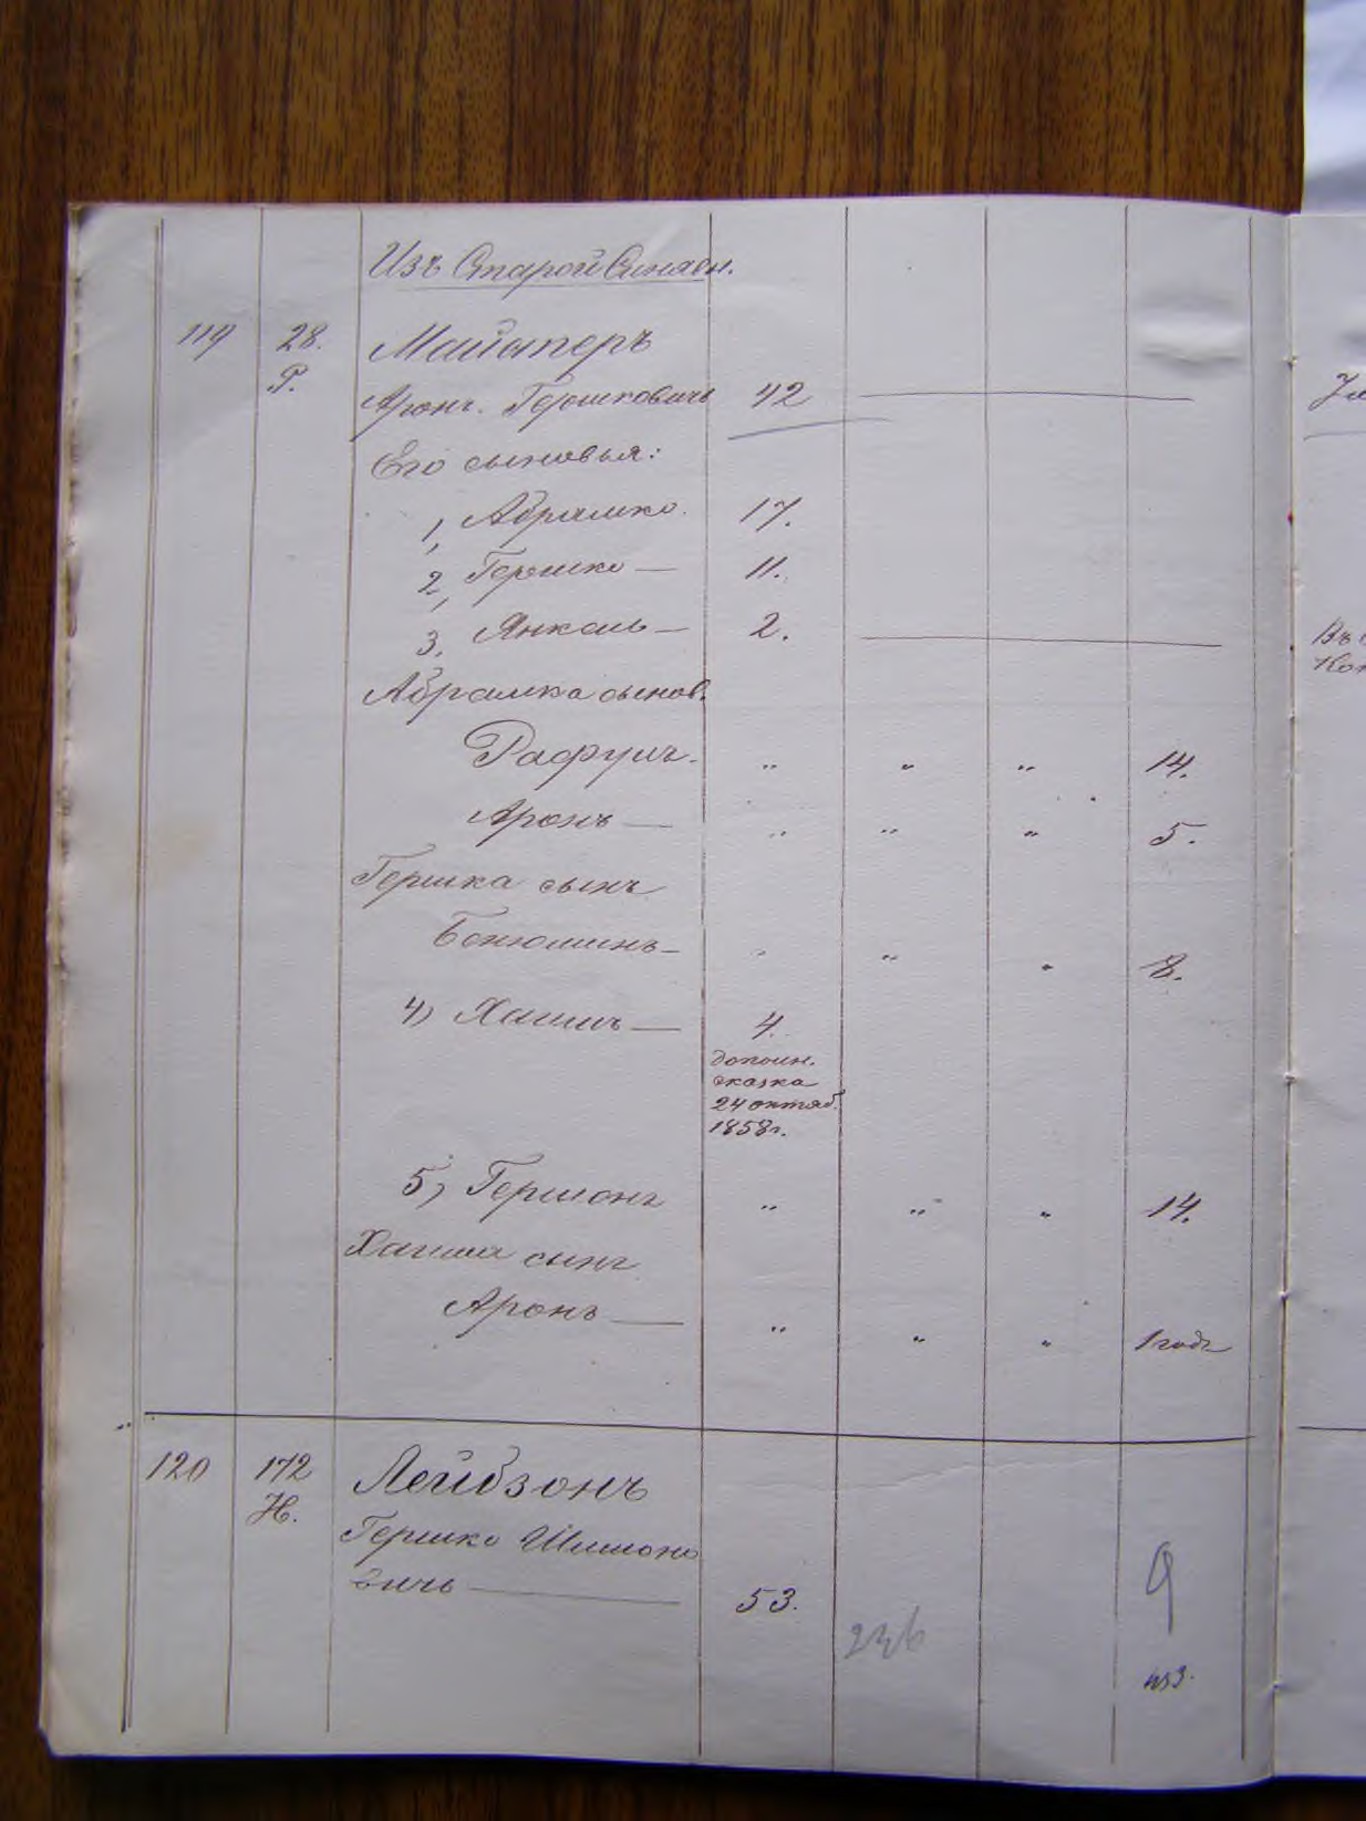 Изъ Старой Синявы.
119 28. Майстеръ
Р.
Аронъ Гершковичъ 42
Его сыновья:
1, Абрамко. 17.
2, Гершко — 11.
3, Янкель — 2.
Абрамка сынов.
Рафулъ - " " " 14.
Аронъ — " " " 5.
Гершка сынъ
Бенюминъ - " " " 8.
4) Хаимъ — 4.
дополн.
сказка
24 октяб.
1858г.
5) Гершонъ " " " 14.
Хаима сынъ
Аронъ — " " " 1 годъ
120 172 Лейбзонъ
Н.
Гершко Шимоно
вичъ — 53.
9